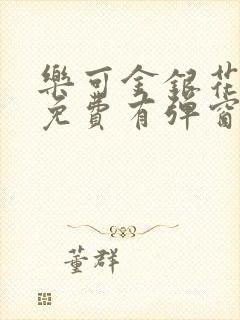 樂可金銀花
免費有彈窗
董群